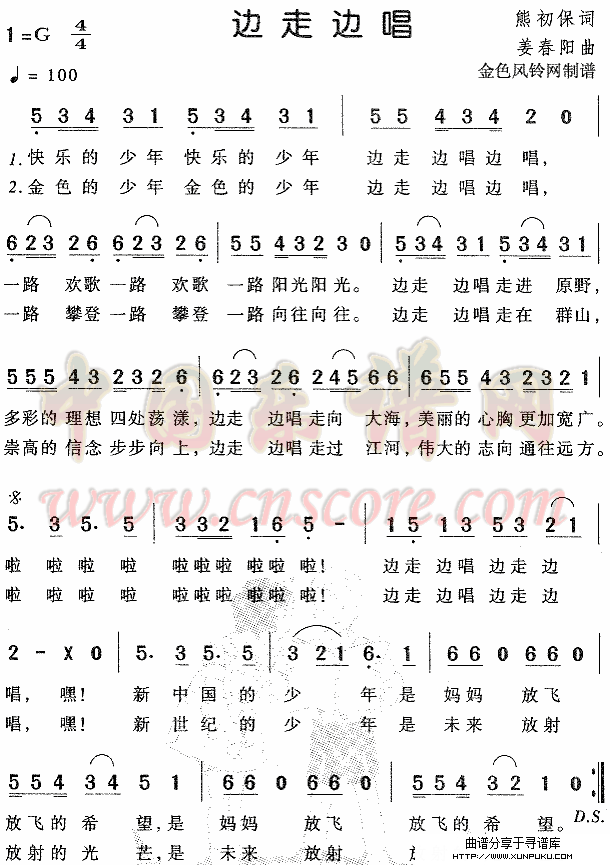 边走边唱
1=G 4/4
♩= 100
熊初保词
姜春阳曲
金色风铃网制谱
5 3 4 3 1 5 3 4 3 1 | 5 5 4 3 4 2 0
1.快乐的 少年 快乐的 少年 边走 边唱边 唱,
2.金色的 少年 金色的 少年 边走 边唱边 唱,
6 2 3 2 6 6 2 3 2 6 | 5 5 4 3 2 3 0 | 5 3 4 3 1 5 3 4 3 1
一路 欢歌一路 欢歌 一路阳光阳光。 边走 边唱走进 原野,
一路 攀登一路 攀登 一路向往向往。 边走 边唱走在 群山,
5 5 5 4 3 2 3 2 6 | 6 2 3 2 6 2 4 5 6 6 | 6 5 5 4 5 3 2 3 2 1
多彩的 理想 四处荡漾,边走 边唱走向 大海,美丽的心胸更加宽广。
崇高的 信念 步步向上,边走 边唱走过 江河,伟大的志向通往远方。
5. 3 5. 5 | 3 3 2 1 6 5 - | 1 5 1 3 5 3 2 1
啦 啦 啦 啦 啦啦啦啦啦 啦! 边走 边唱 边走 边
啦 啦 啦 啦 啦啦啦啦啦 啦! 边走 边唱 边走 边
2 - X 0 | 5. 3 5. 5 | 3 3 2 1 6. 1 | 6 6 0 6 6 0
唱, 嘿! 新 中国 的 少 年 是 妈妈 放飞
唱, 嘿! 新 世纪 的 少 年 是 未来 放射
5 5 4 3 4 5 1 | 6 6 0 6 6 0 | 5 5 4 3 2 1 0 :||
放飞的 希 望,是 妈妈 放飞 放飞的 希 望。 D.S.
放射的 光 芒,是 未来 放射
曲谱分享于寻谱库
www.xunpuku.com
中国曲谱网
www.cnscore.com